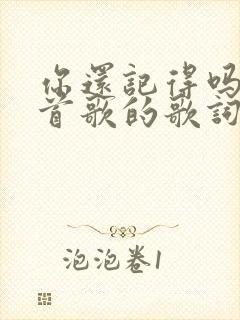 你還記得吗
首歌的歌詞
泡泡卷1